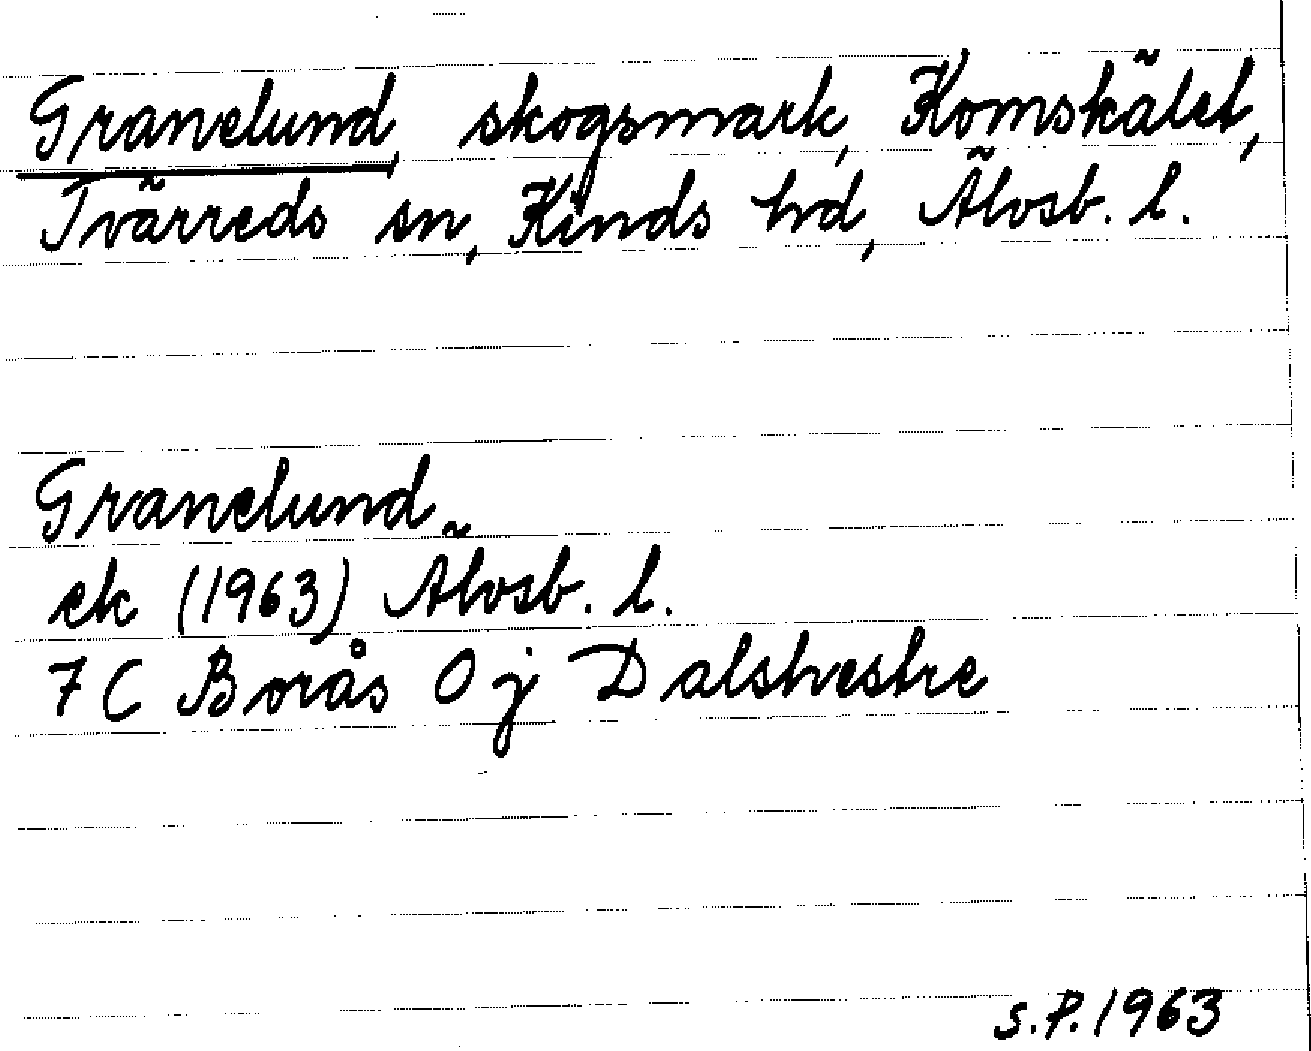 Granelund, skogsmark, Komskälet,
Tvärreds sn, Kinds hd, Älvsb. l.
Granelund
ek (1963) Älvsb. l.
7 C Borås 0 j Dalstvestre
S.P. 1963